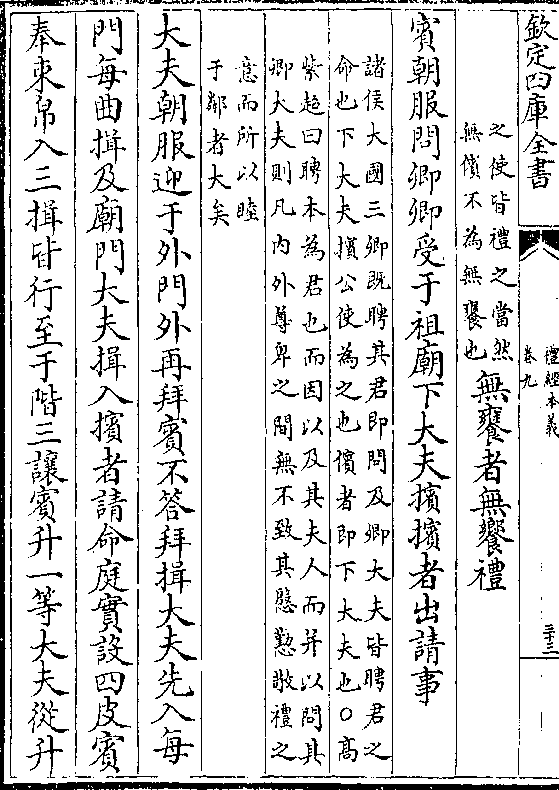 欽定四庫全書
禮經本義
卷九
三十三
之使皆禮之當然
無儐不為無饔也
無饔者無饗禮
賓朝服問卿卿受于祖廟下大夫擯擯者出請事
諸侯大國三卿既聘其君即問及卿大夫皆聘君之
命也下大夫擯公使為之也儐者即下大夫也○高
紫超曰聘本為君也而因以及其夫人而并以問其
卿大夫則凡内外尊卑之間無不致其慇懃敬禮之
意而所以睦
于鄰者大矣
大夫朝服迎于外門外再拜賓不答拜揖大夫先入每
門每曲揖及廟門大夫揖入擯者請命庭實設四皮賓
奉束帛入三揖皆行至于階三讓賓升一等大夫從升